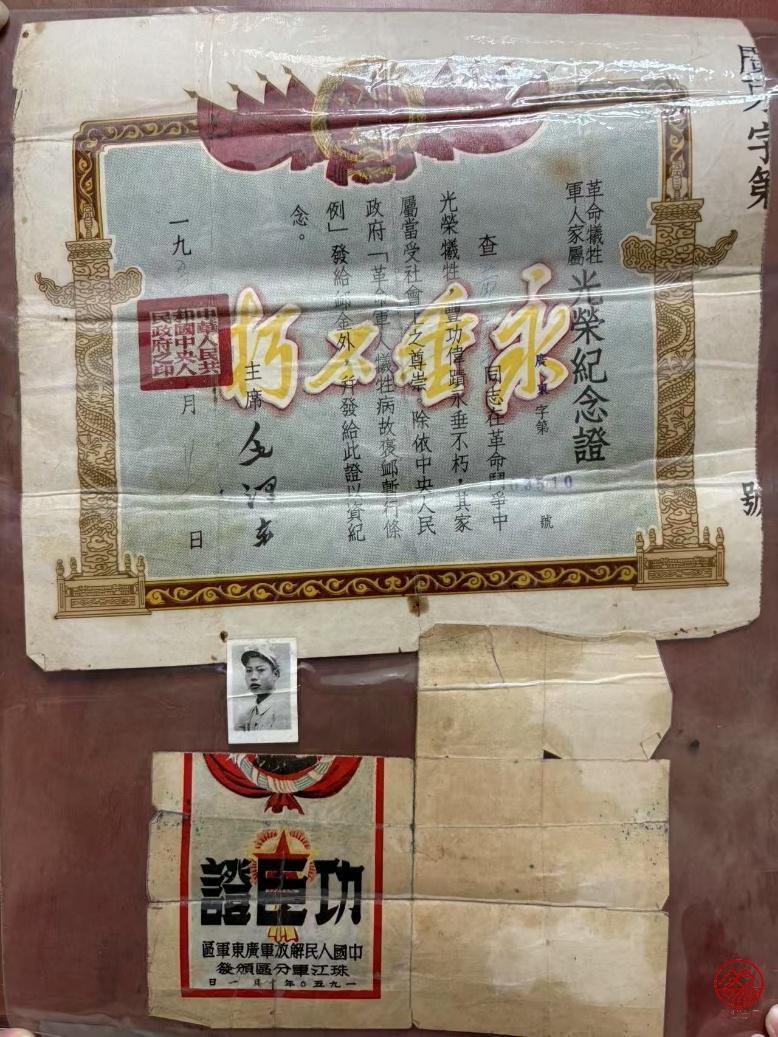 廣東字第
號
革命犧牲
軍人家屬
光榮紀念證
廣東字第
號
查
同志在革命鬥爭中
光榮犧牲,豐功偉蹟永垂不朽,其家
屬當受社會上之尊崇。除依中央人民
政府「革命軍人犧牲病故褒卹暫行條
例」發給卹金外,並發給此證以資紀
念。
永垂不朽
主席 毛澤東
一九五
月
日
中華人民共
和國中央人
民政府之印
功臣證
中國人民解放軍廣東軍區
珠江軍分區頒發
一九五〇年 月一日